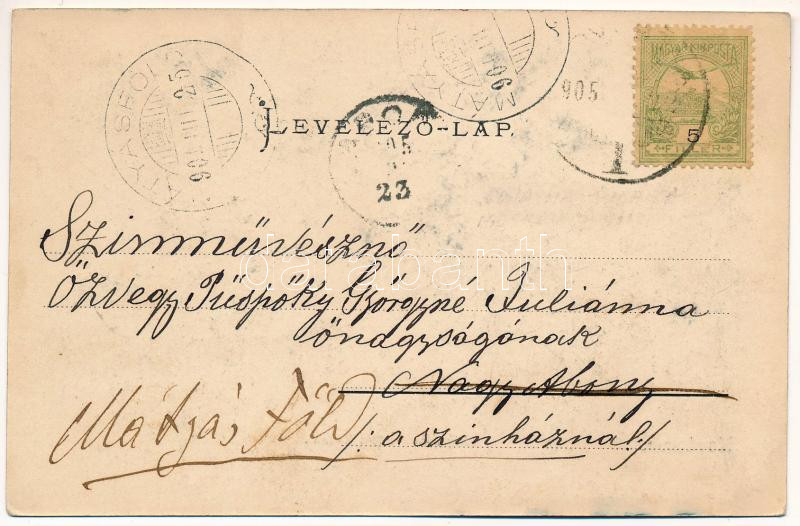 MAGYAR KIR. POSTA
5
FILLÉR
905
LEVELEZŐ-LAP.
23
1
Szinművésznő
Özvegy Püspöky Györgyné Juliánna
őnagyságának
Nagy Abony
Mátyás Föld
/: a szinháznál :/
darabanth